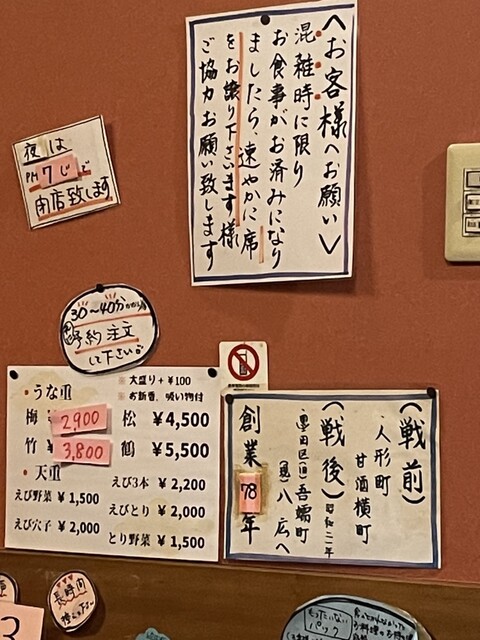 〈お客様へお願い〉
混雑時に限り
お食事がお済みになり
ましたら、速やかに席
をお譲り下さいます様
ご協力お願い致します
夜は
PM7じで
閉店致します
30〜40分かかります
予約注文
して下さい。
・うな重
大盛り+¥100
お新香、吸い物付
梅 2900
松 ¥4,500
竹 3,800
鶴 ¥5,500
・天重
えび野菜 ¥1,500
えび3本 ¥2,200
えびとり ¥2,000
えび穴子 ¥2,000
とり野菜 ¥1,500
(戦前)
人形町
甘酒横町
(戦後)昭和二一年
墨田区(旧)吾嬬町
(現)八広へ
創業78年
長時間
もったいない
パック